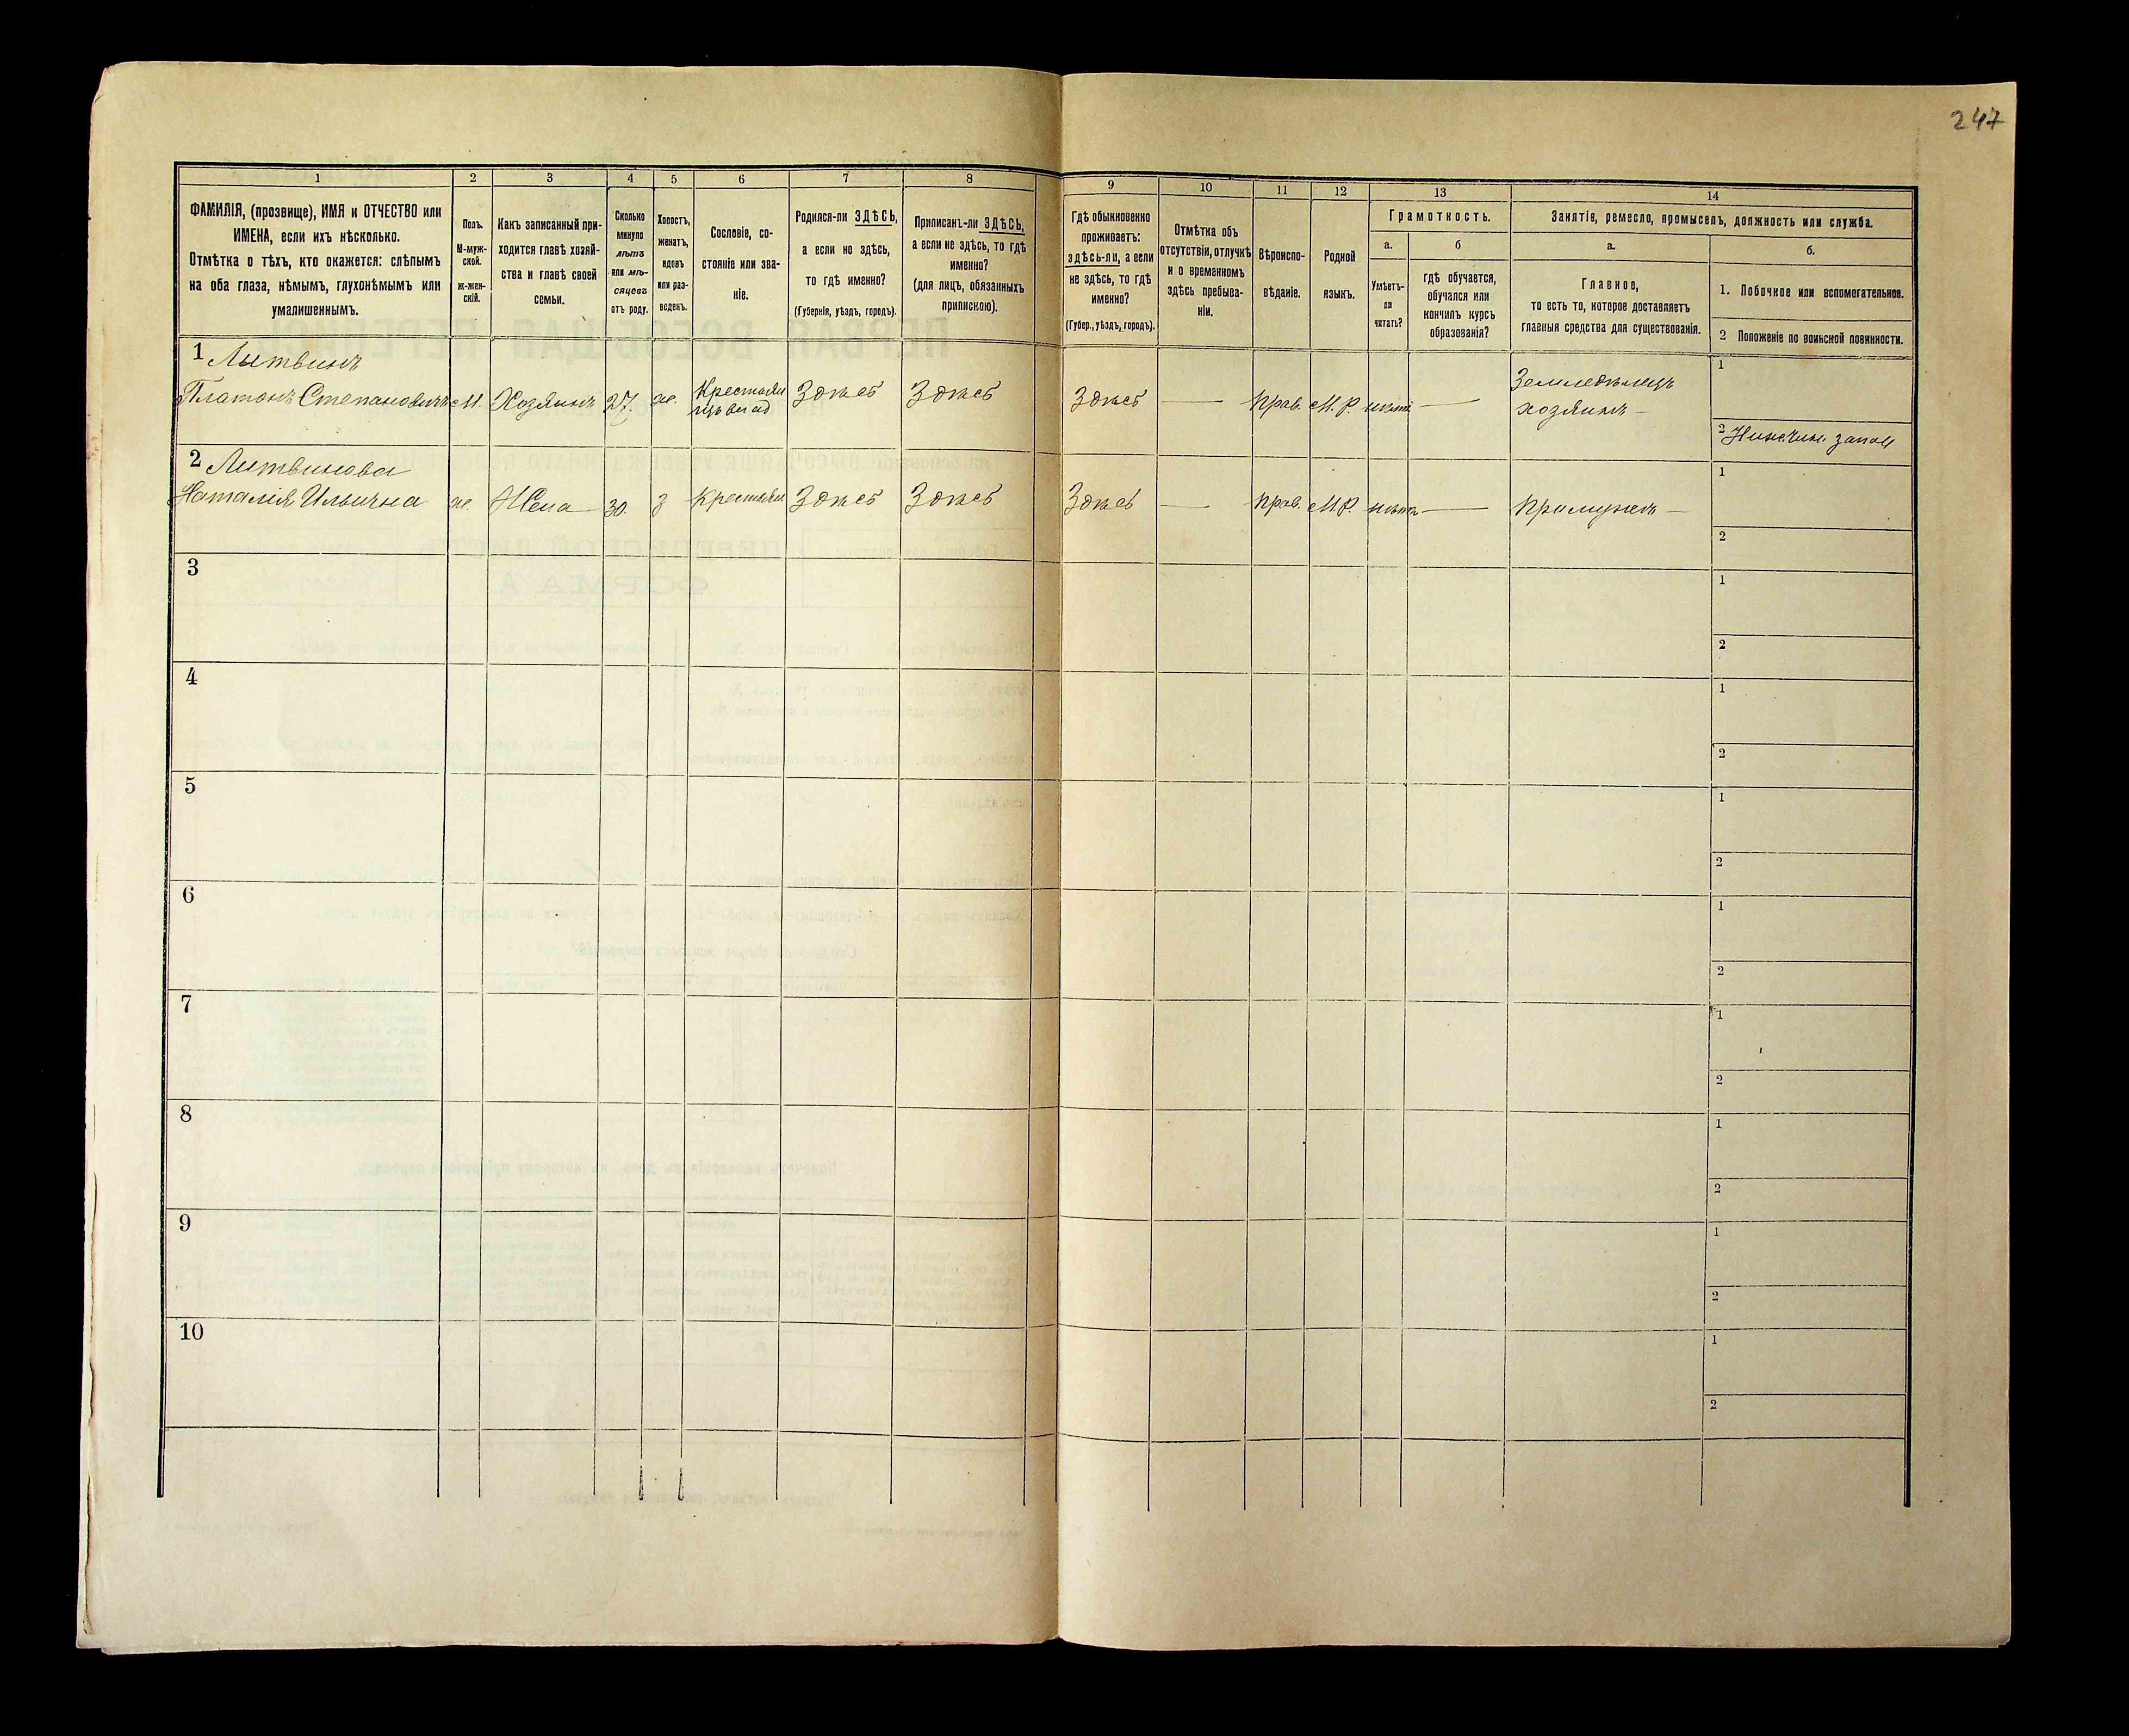 247
1
2
3
4
5
6
7
8
9
10
11
12
13
14
ФАМИЛІЯ, (прозвище), ИМЯ и ОТЧЕСТВО или
ИМЕНА, если ихъ нѣсколько.
Отмѣтка о тѣхъ, кто окажется: слѣпымъ
на оба глаза, нѣмымъ, глухонѣмымъ или
умалишеннымъ.
Полъ.
М-муж-
ской.
Ж-жен-
скій.
Какъ записанный при-
ходится главѣ хозяй-
ства и главѣ своей
семьи.
Сколько
минуло
лѣтъ
или мѣ-
сяцевъ
отъ роду.
Холостъ,
женатъ,
вдовъ
или раз-
веденъ.
Сословіе, со-
стояніе или зва-
ніе.
Родился-ли ЗДѢСЬ,
а если не здѣсь,
то гдѣ именно?
(Губернія, уѣздъ, городъ).
Приписанъ-ли ЗДѢСЬ,
а если не здѣсь, то гдѣ
именно?
(для лицъ, обязанныхъ
припискою).
Гдѣ обыкновенно
проживаетъ:
здѣсь-ли, а если
не здѣсь, то гдѣ
именно?
(Губер., уѣздъ, городъ).
Отмѣтка объ
отсутствіи, отлучкѣ
и о временномъ
здѣсь пребыва-
ніи.
Вѣроиспо-
вѣданіе.
Родной
языкъ.
Грамотность.
а.
Умѣетъ-
ли
читать?
б
гдѣ обучается,
обучался или
кончилъ курсъ
образованія?
Занятіе, ремесло, промыселъ, должность или служба.
а.
Главное,
то есть то, которое доставляетъ
главныя средства для существованія.
б.
1. Побочное или вспомогательное.
2 Положеніе по воинской повинности.
1 Литвинъ
Платонъ Степановичъ
М.
Хозяинъ
27.
ж.
Крестьян
Здѣсь
Здѣсь
Здѣсь
—
прав.
М. Р.
—
Земледѣлецъ
хозяинъ —
1
2 Ниж. чин. запас
2 Литвинова
Наталія Ильична
ж.
Жена
30.
З
Крестьян
Здѣсь
Здѣсь
Здѣсь
—
прав.
М Р.
нѣтъ
—
при мужѣ —
1
2
3
1
2
4
1
2
5
1
2
6
1
2
7
1
2
8
1
2
9
1
2
10
1
2